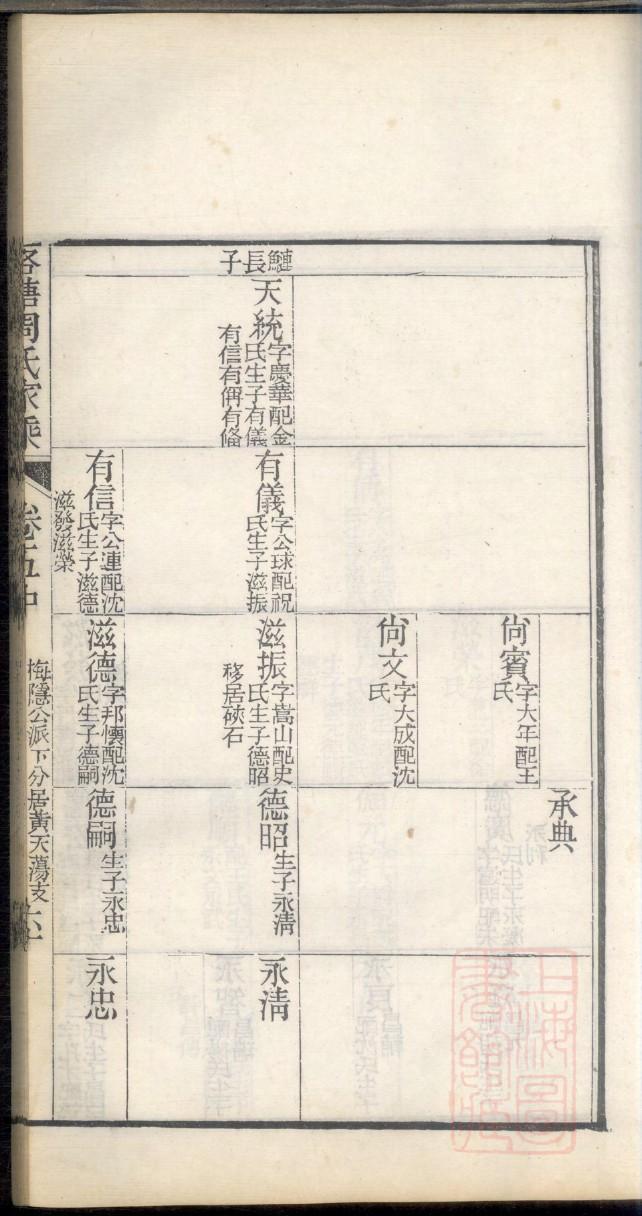 承典
尙賓字大年配王
氏
尙文字大成配沈
氏
鰱長子
天統字慶華配金
氏生子有儀
有信有俏有俻
有儀字公球配祝
氏生子滋振
滋振字嵩山配史
氏生子德昭
移居硤石
德昭生子永淸
永淸
有信字公運配沈
氏生子滋德
滋發滋榮
滋德字邦懷配沈
氏生子德嗣
德嗣生子永忠
永忠
塘周氏家乘
卷五中
梅隱公派下分居黃天蕩支
上海圖